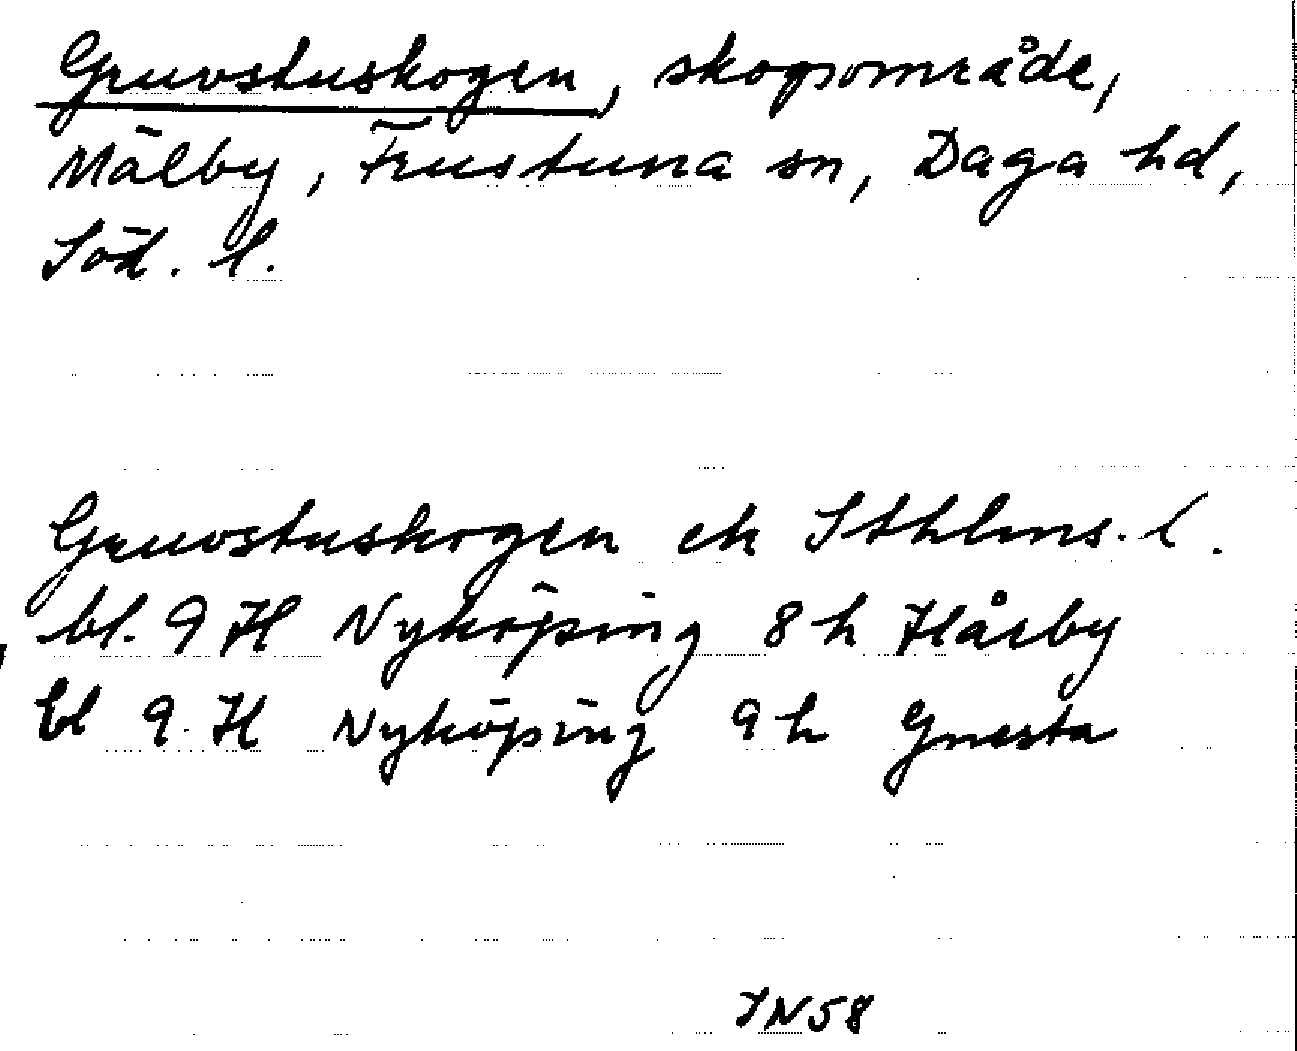 Gruvstuskogen, skogsområde,
Mälby, Frustuna sn, Daga hd,
Söd. l.
Gruvstuskogen ek Sthlms. l.
bl. 9 H Nyköping 8 h Hårby
bl 9. H Nyköping 9 h Gnesta
IN58